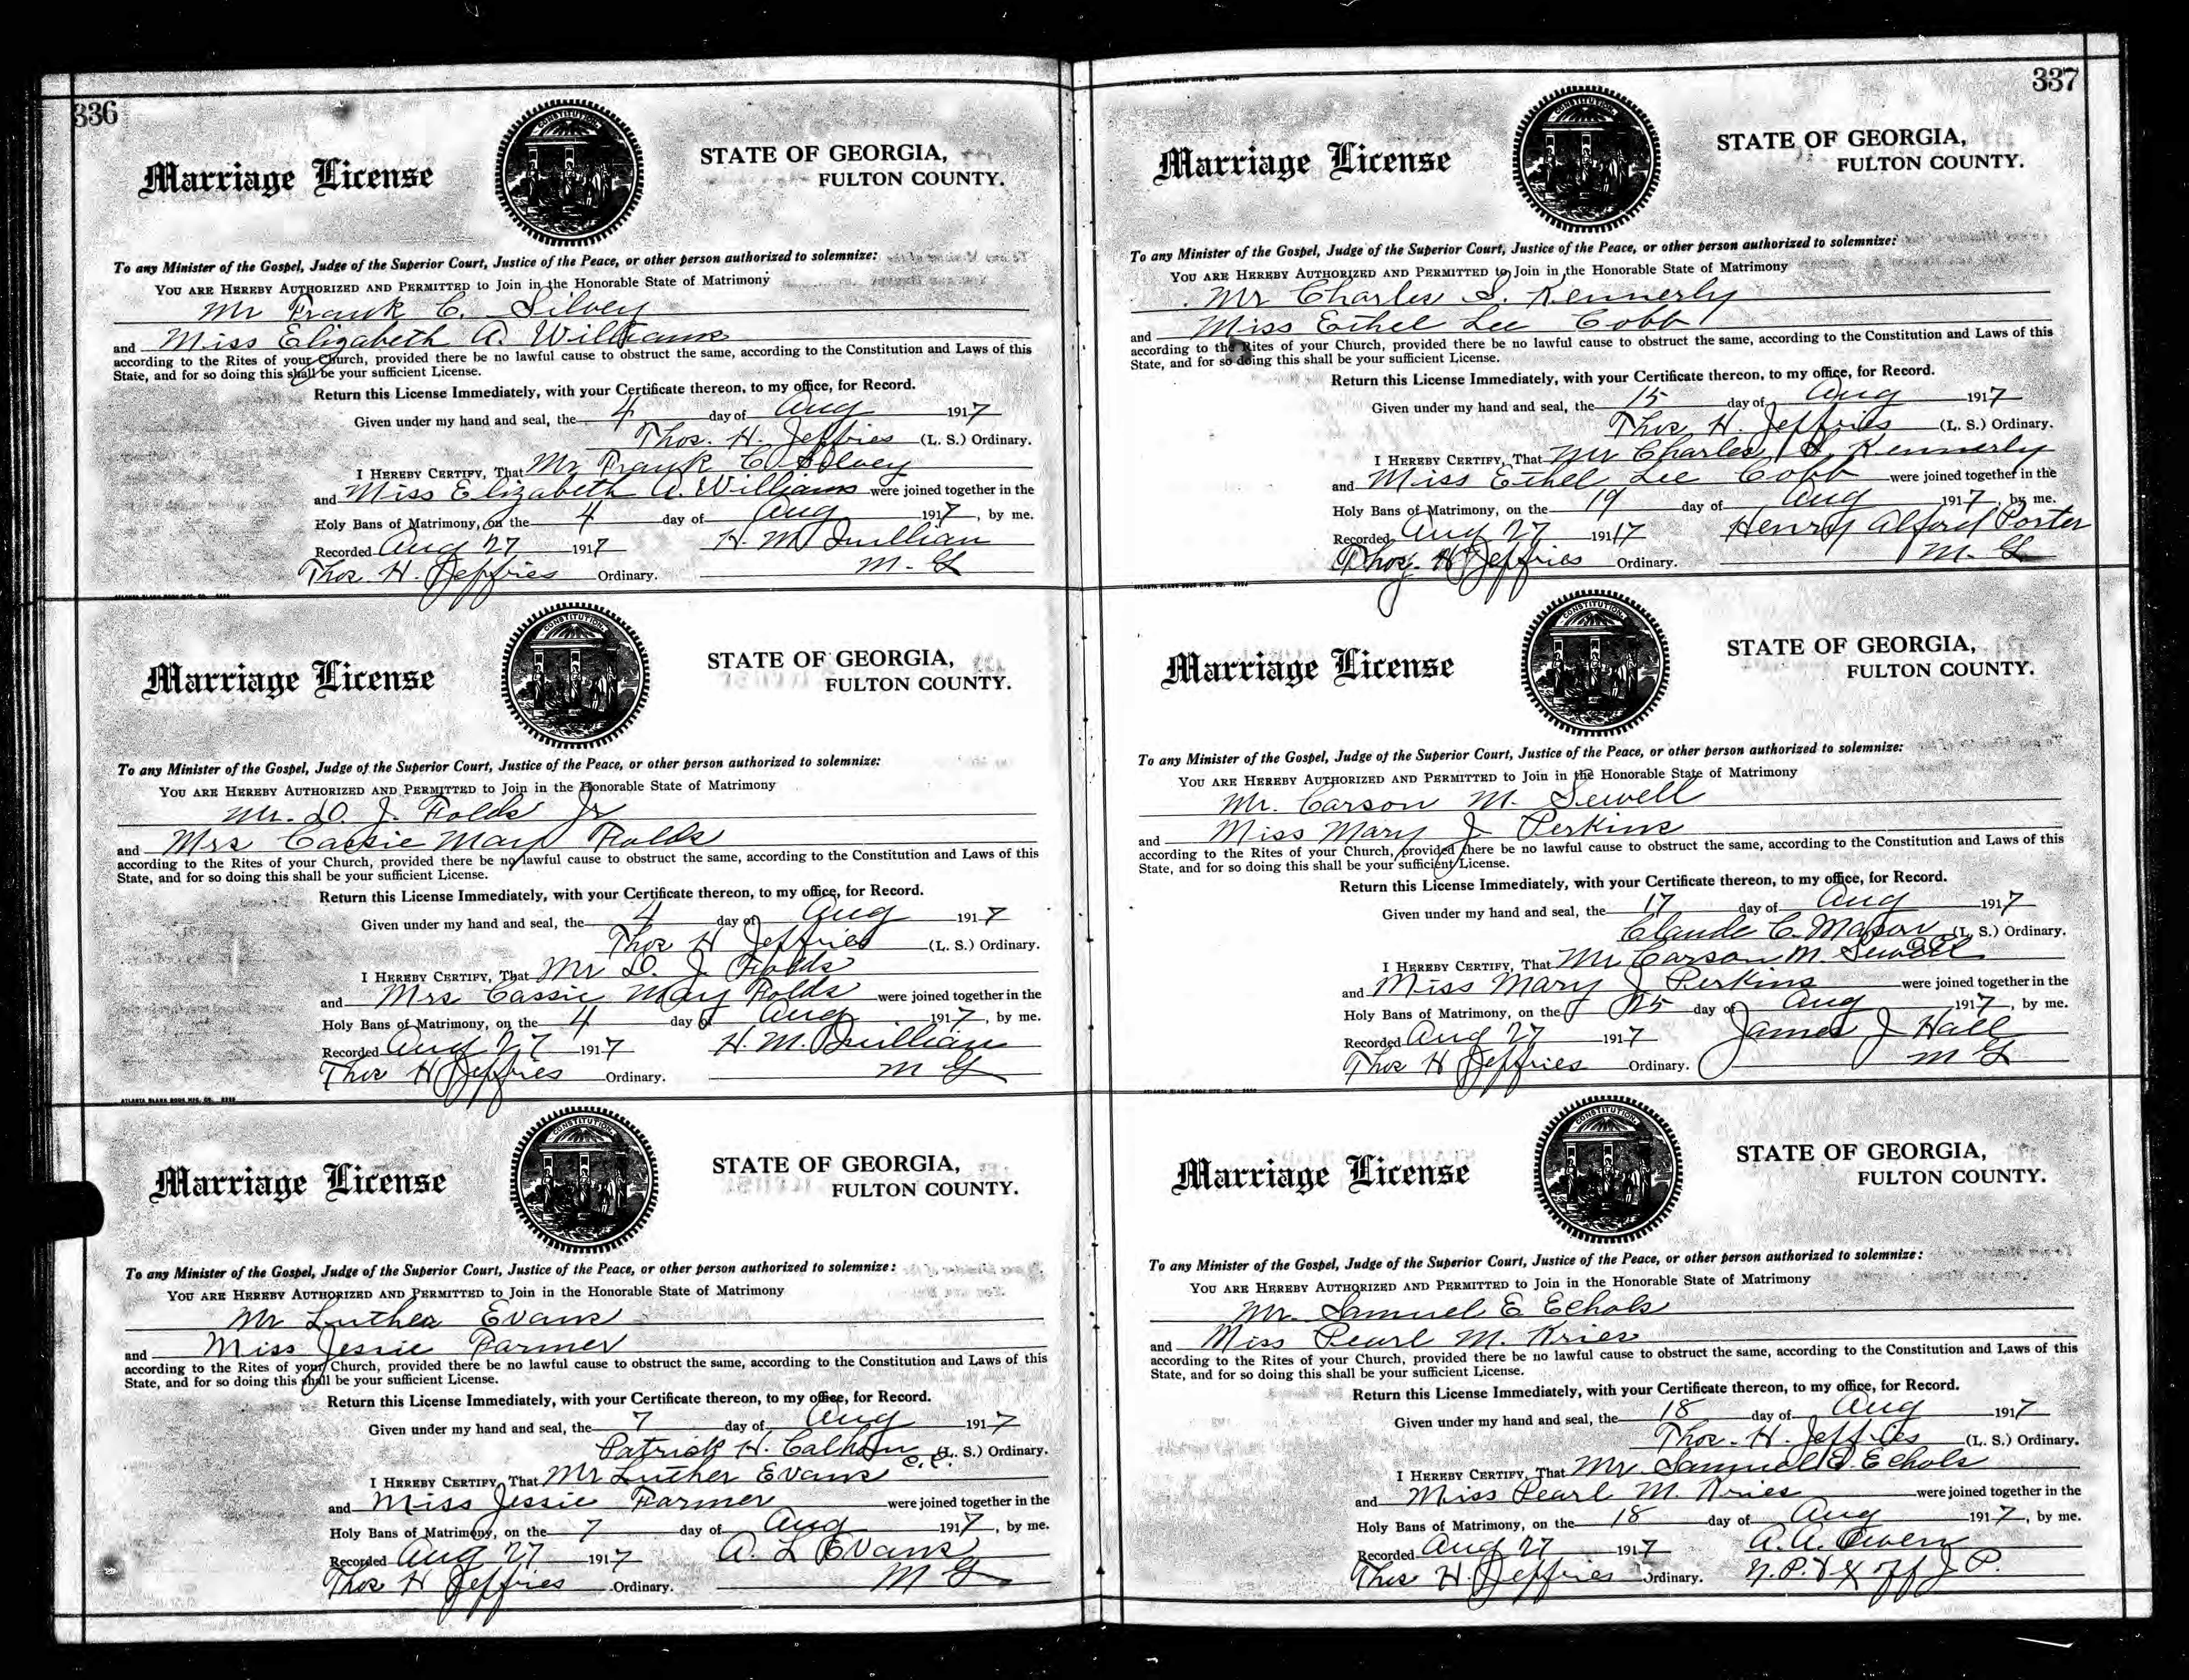 336
Marriage License
CONSTITUTION
STATE OF GEORGIA,
FULTON COUNTY.
To any Minister of the Gospel, Judge of the Superior Court, Justice of the Peace, or other person authorized to solemnize:
YOU ARE HEREBY AUTHORIZED AND PERMITTED to Join in the Honorable State of Matrimony
Mr Frank C. Silvey
and Miss Elizabeth A. Williams
according to the Rites of your Church, provided there be no lawful cause to obstruct the same, according to the Constitution and Laws of this
State, and for so doing this shall be your sufficient License.
Return this License Immediately, with your Certificate thereon, to my office, for Record.
Given under my hand and seal, the 4 day of Aug 1917
Thos. H. Jeffries (L. S.) Ordinary.
I HEREBY CERTIFY, That Mr Frank C. Silvey
and Miss Elizabeth A. Williams were joined together in the
Holy Bans of Matrimony, on the 4 day of Aug 1917, by me.
Recorded Aug 27 1917 H. M. Quillian
Thos. H. Jeffries Ordinary. M. G
Marriage License
CONSTITUTION
STATE OF GEORGIA,
FULTON COUNTY.
To any Minister of the Gospel, Judge of the Superior Court, Justice of the Peace, or other person authorized to solemnize:
YOU ARE HEREBY AUTHORIZED AND PERMITTED to Join in the Honorable State of Matrimony
Mr. D. J. Folds Jr
and Mrs Cassie May Folds
according to the Rites of your Church, provided there be no lawful cause to obstruct the same, according to the Constitution and Laws of this
State, and for so doing this shall be your sufficient License.
Return this License Immediately, with your Certificate thereon, to my office, for Record.
Given under my hand and seal, the 4 day of Aug 1917
Thos H Jeffries (L. S.) Ordinary.
I HEREBY CERTIFY, That Mr D. J. Folds
and Mrs Cassie May Folds were joined together in the
Holy Bans of Matrimony, on the 4 day of Aug 1917, by me.
Recorded Aug 27 1917 H. M. Quillian
Thos H Jeffries Ordinary. M G
ATLANTA BLANK BOOK MFG. CO.
Marriage License
CONSTITUTION
STATE OF GEORGIA,
FULTON COUNTY.
To any Minister of the Gospel, Judge of the Superior Court, Justice of the Peace, or other person authorized to solemnize:
YOU ARE HEREBY AUTHORIZED AND PERMITTED to Join in the Honorable State of Matrimony
Mr Luther Evans
and Miss Jessie Farmer
according to the Rites of your Church, provided there be no lawful cause to obstruct the same, according to the Constitution and Laws of this
State, and for so doing this shall be your sufficient License.
Return this License Immediately, with your Certificate thereon, to my office, for Record.
Given under my hand and seal, the 7 day of Aug 1917
Patrick H. Calhoun (L. S.) Ordinary.
I HEREBY CERTIFY, That Mr Luther Evans
and Miss Jessie Farmer were joined together in the
Holy Bans of Matrimony, on the 7 day of Aug 1917, by me.
Recorded Aug 27 1917 A. L Evans
Thos H Jeffries Ordinary. M G
337
Marriage License
CONSTITUTION
STATE OF GEORGIA,
FULTON COUNTY.
To any Minister of the Gospel, Judge of the Superior Court, Justice of the Peace, or other person authorized to solemnize:
YOU ARE HEREBY AUTHORIZED AND PERMITTED to Join in the Honorable State of Matrimony
Mr Charles S. Kennerly
and Miss Ethel Lee Cobb
according to the Rites of your Church, provided there be no lawful cause to obstruct the same, according to the Constitution and Laws of this
State, and for so doing this shall be your sufficient License.
Return this License Immediately, with your Certificate thereon, to my office, for Record.
Given under my hand and seal, the 15 day of Aug 1917
Thos H. Jeffries (L. S.) Ordinary.
I HEREBY CERTIFY, That Mr Charles S. Kennerly
and Miss Ethel Lee Cobb were joined together in the
Holy Bans of Matrimony, on the 19 day of Aug 1917, by me.
Recorded Aug 27 1917 Henry Alford Porter
Thos. H Jeffries Ordinary. M. G
Marriage License
CONSTITUTION
STATE OF GEORGIA,
FULTON COUNTY.
To any Minister of the Gospel, Judge of the Superior Court, Justice of the Peace, or other person authorized to solemnize:
YOU ARE HEREBY AUTHORIZED AND PERMITTED to Join in the Honorable State of Matrimony
Mr. Carson M. Sewell
and Miss Mary J Perkins
according to the Rites of your Church, provided there be no lawful cause to obstruct the same, according to the Constitution and Laws of this
State, and for so doing this shall be your sufficient License.
Return this License Immediately, with your Certificate thereon, to my office, for Record.
Given under my hand and seal, the 17 day of Aug 1917
Claude C. Mason (L. S.) Ordinary.
I HEREBY CERTIFY, That Mr Carson M. Sewell
and Miss Mary J Perkins were joined together in the
Holy Bans of Matrimony, on the 25 day of Aug 1917, by me.
Recorded Aug 27 1917 James J Hall
Thos H Jeffries Ordinary. M G
ATLANTA BLANK BOOK MFG. CO.
Marriage License
CONSTITUTION
STATE OF GEORGIA,
FULTON COUNTY.
To any Minister of the Gospel, Judge of the Superior Court, Justice of the Peace, or other person authorized to solemnize:
YOU ARE HEREBY AUTHORIZED AND PERMITTED to Join in the Honorable State of Matrimony
Mr. Samuel E Echols
and Miss Pearl M. Kries
according to the Rites of your Church, provided there be no lawful cause to obstruct the same, according to the Constitution and Laws of this
State, and for so doing this shall be your sufficient License.
Return this License Immediately, with your Certificate thereon, to my office, for Record.
Given under my hand and seal, the 18 day of Aug 1917
Thos. H. Jeffries (L. S.) Ordinary.
I HEREBY CERTIFY, That Mr Samuel E Echols
and Miss Pearl M. Kries were joined together in the
Holy Bans of Matrimony, on the 18 day of Aug 1917, by me.
Recorded Aug 27 1917 A. A. Owen
Thos H. Jeffries Ordinary. N. P. & Ex off J. P.